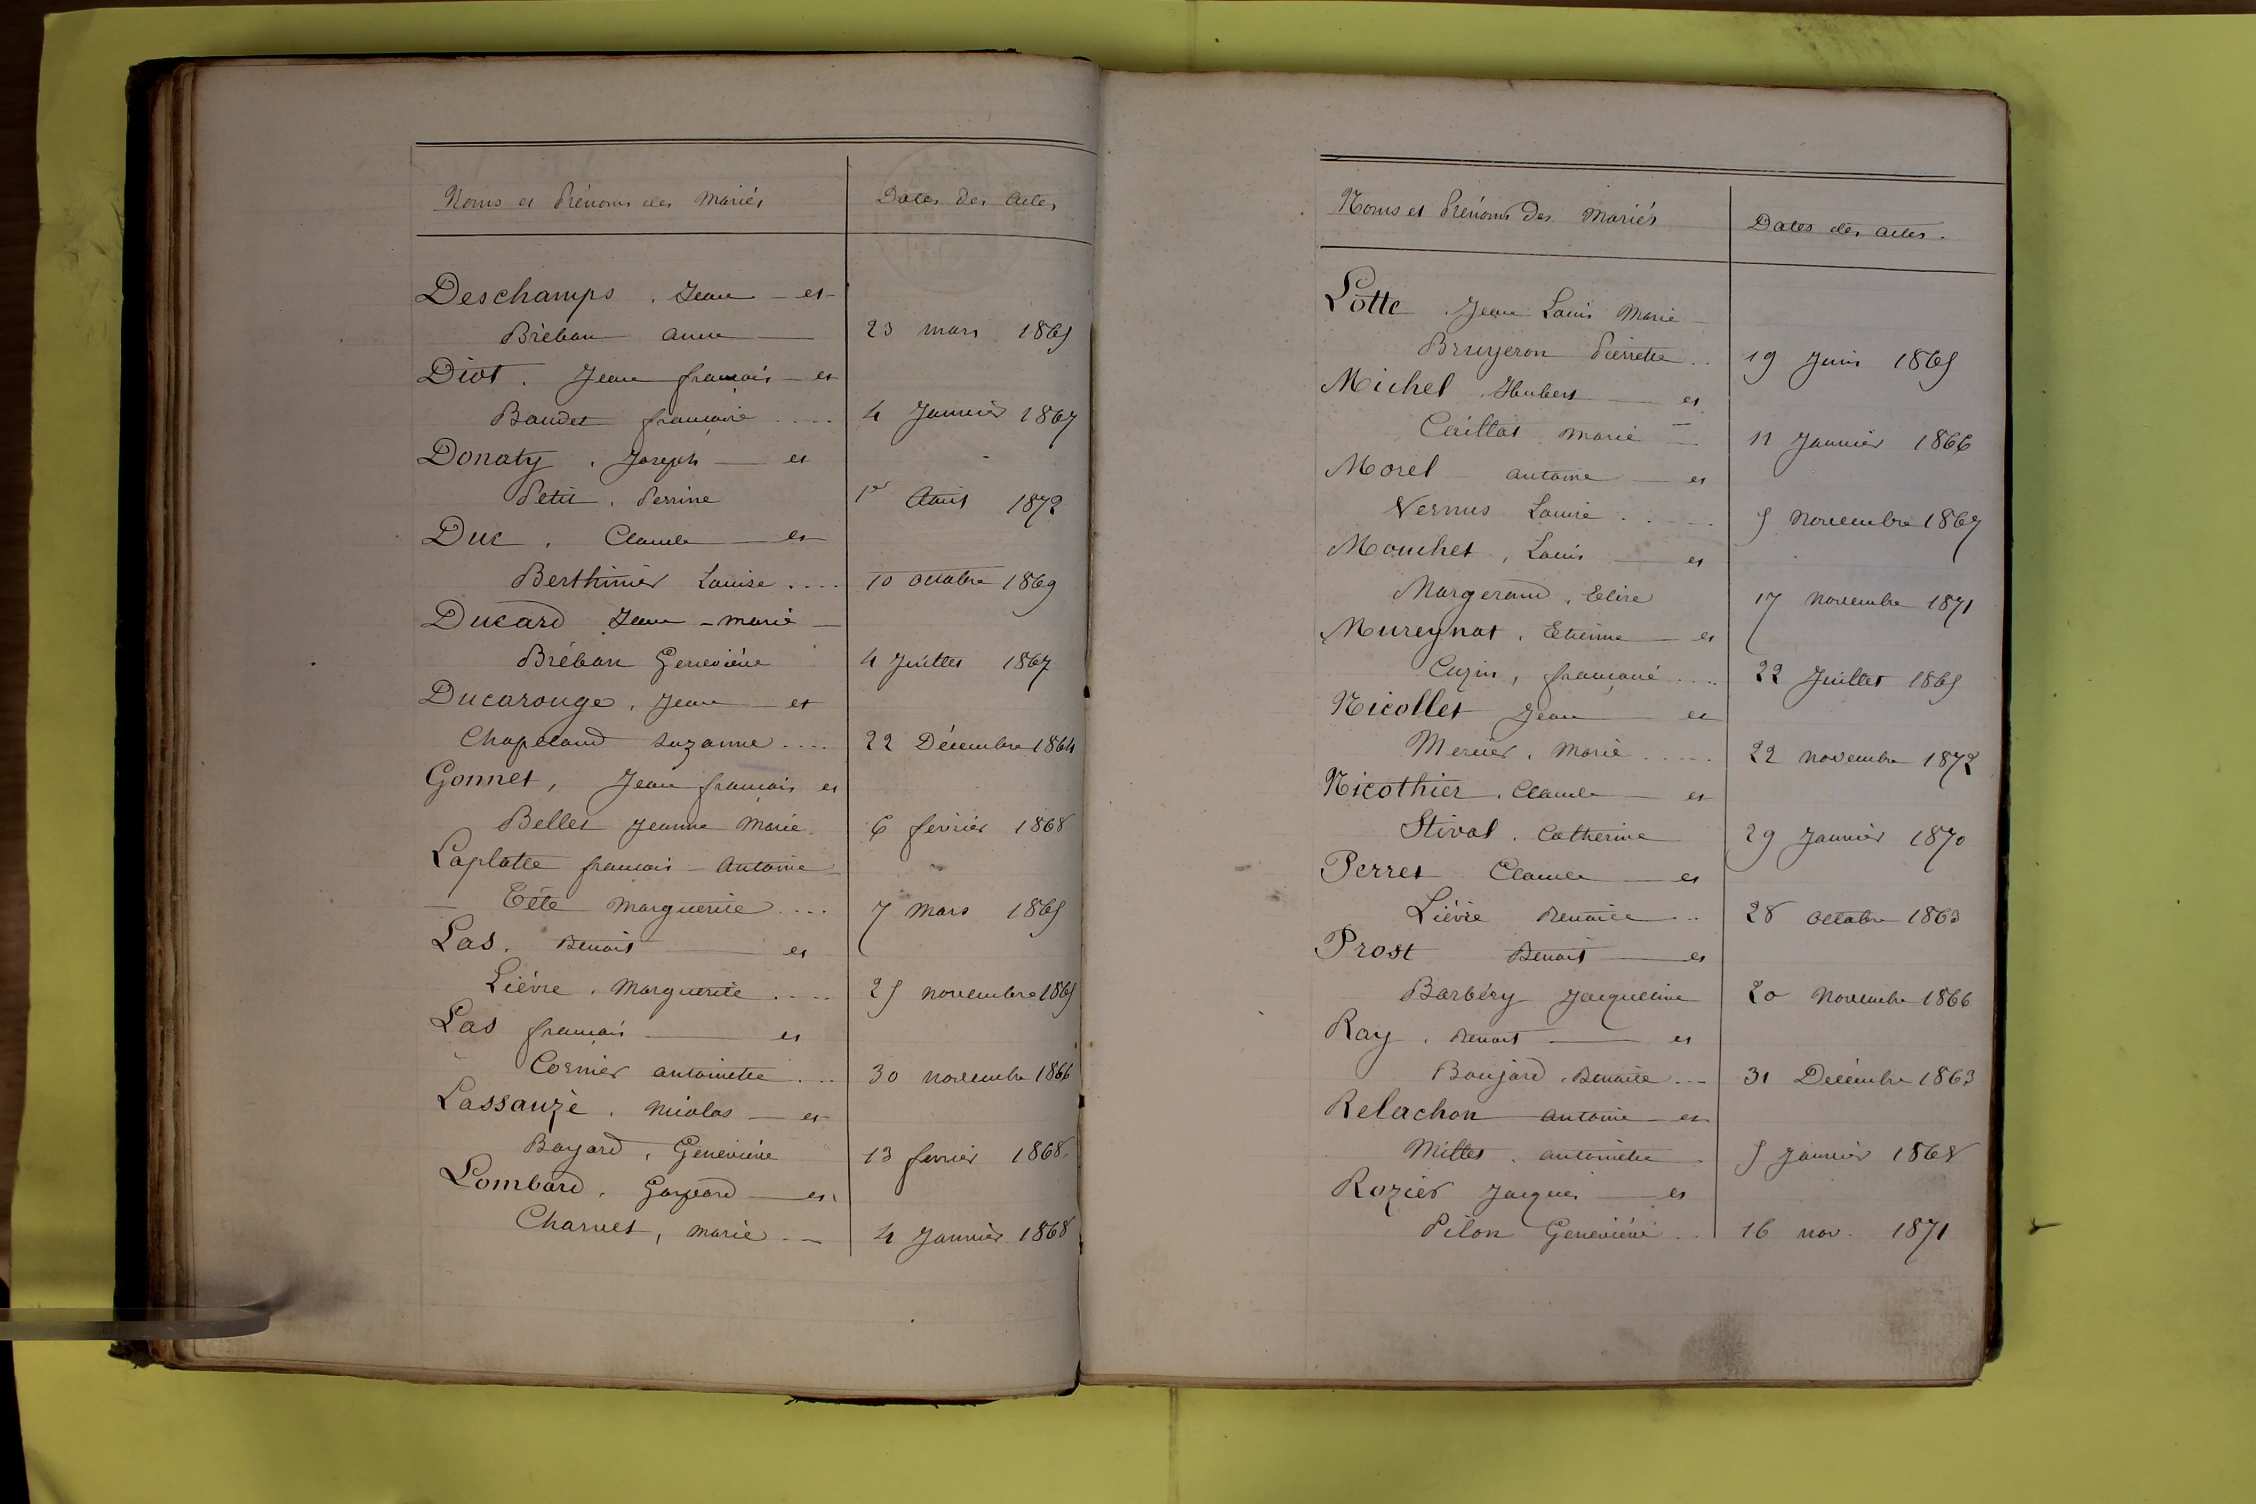 Noms et Prénoms des Mariés
Dates des Actes
Deschamps, Jean et
Bréban Anne 23 mars 1865
Diot. Jean françois et
Baudet françoise .... 4 Janvier 1867
Donaty, Joseph et
Petit, Perrine 1er Août 1872
Duc, Claude et
Berthinier Louise .... 10 octobre 1869
Ducard Jean-marie
Bréban Geneviève 4 Juillet 1867
Ducarouge, Jean et
Chapeland Suzanne .... 22 Décembre 1864
Gonnet, Jean françois et
Bellet Jeanne Marie. 6 février 1868
Laplatte françois Antoine
Tête Marguerite .... 7 Mars 1865
Las. Benoit et
Lièvre, Marguerite .... 25 novembre 1865
Las françois et
Cornier antoinette .... 30 novembre 1866
Lassauzè, Nicolas et
Bayard, Geneviève 13 février 1868.
Lombard, Gaspard et
Charvet, Marie 4 Janvier 1868
Noms et Prénoms des Mariés
Dates des actes.
Lotte, Jean Louis Marie
Bruyeron Pierrette .. 19 Juin 1865
Michel, Hubert et
Caillat Marie 11 Janvier 1866
Morel antoine et
Vernus Louise ..... 5 Novembre 1867
Mouchet, Louis et
Margerand, Elise 17 Novembre 1871
Mureynat, Etienne et
Cuzin, françoise .... 22 Juillet 1865
Nicollet Jean et
Mercier, Marie ..... 22 novembre 1872
Nicothier, Claude et
Stival, Catherine 29 Janvier 1870
Perret Claude et
Lièvre Benoite .. 28 Octobre 1863
Prost Benoit et
Barbéry Jacqueline 20 Novembre 1866
Ray, Benoit et
Boujard, Benoite ... 31 Décembre 1863
Relachon Antoine et
Millet, antoinette 5 Janvier 1868
Rozier Jacques et
Pilon Geneviève .. 16 nov. 1871